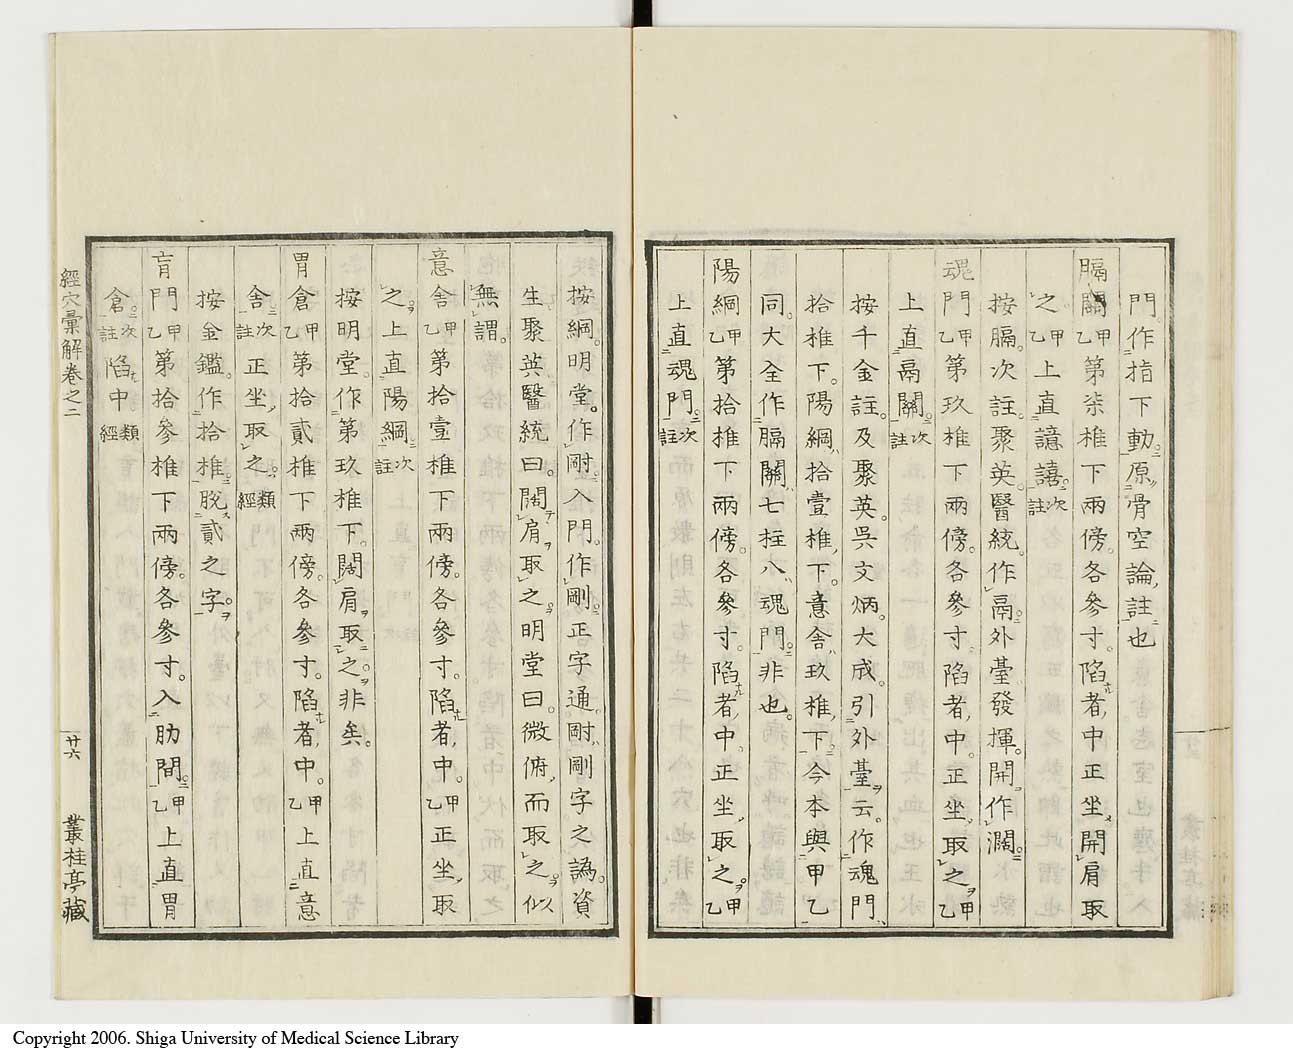 門。作指下動。原骨空論註也
膈關甲乙第柒椎下兩傍。各參寸。陷者中正坐開肩取
之甲乙上直譩譆。次註
按膈。次註。聚英。醫統。作鬲。外臺發揮。開作濶。
魂門甲乙第玖椎下兩傍。各參寸陷者中。正坐取之甲乙
上直鬲關。次註
按千金註。及聚英。吳文炳。大成。引外臺云。作魂門
拾椎下。陽綱拾壹椎下。意舍玖椎下。今本與甲乙
同。大全作膈關七柱八魂門。非也。
陽綱甲乙第拾椎下兩傍。各參寸。陷者中正坐取之。甲乙
上直魂門。次註
按綱。明堂。作剛。入門。作剛。正字通。剛剛字之譌。資
生聚英醫統曰。闊肩取之。明堂曰。微俯而取之。似
無謂。
意舍甲乙第拾壹椎下兩傍。各參寸。陷者中。甲乙正坐取
之。上直陽綱次註
按明堂。作第玖椎下。闊肩取之。非矣。
胃倉甲乙第拾貳椎下兩傍。各參寸。陷者中。甲乙上直意
舍次註正坐取之。類經
按金鑑。作拾椎。脫貳之字。
肓門甲乙第拾參椎下兩傍。各參寸。入肋間。甲乙上直胃
倉。次註陷中類經
經穴彙解卷之二
廿六
叢桂亭藏
Copyright 2006. Shiga University of Medical Science Library